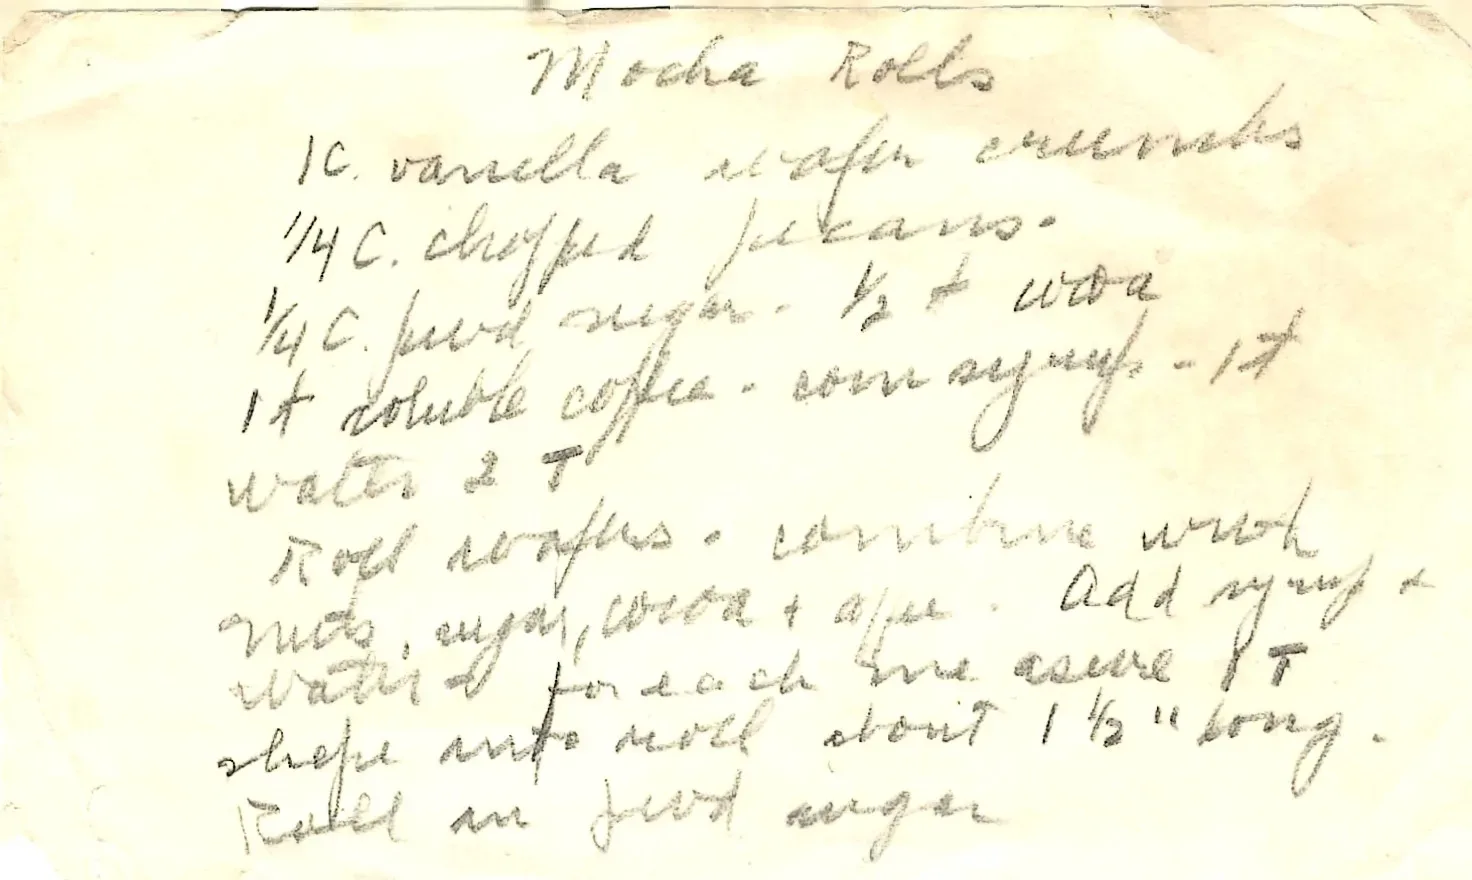 Mocha Rolls
1C. vanilla wafer crumbs
1/4 C. chopped pecans.
1/4 C. powd sugar. 1/2 t cocoa
1t soluble coffee. corn syrup - 1t
water 2 T
Roll wafers. combine with
nuts, sugar, cocoa + coffee. Add syrup +
water + for each measure 1 T
shape into roll about 1 1/2" long.
Roll in powd sugar